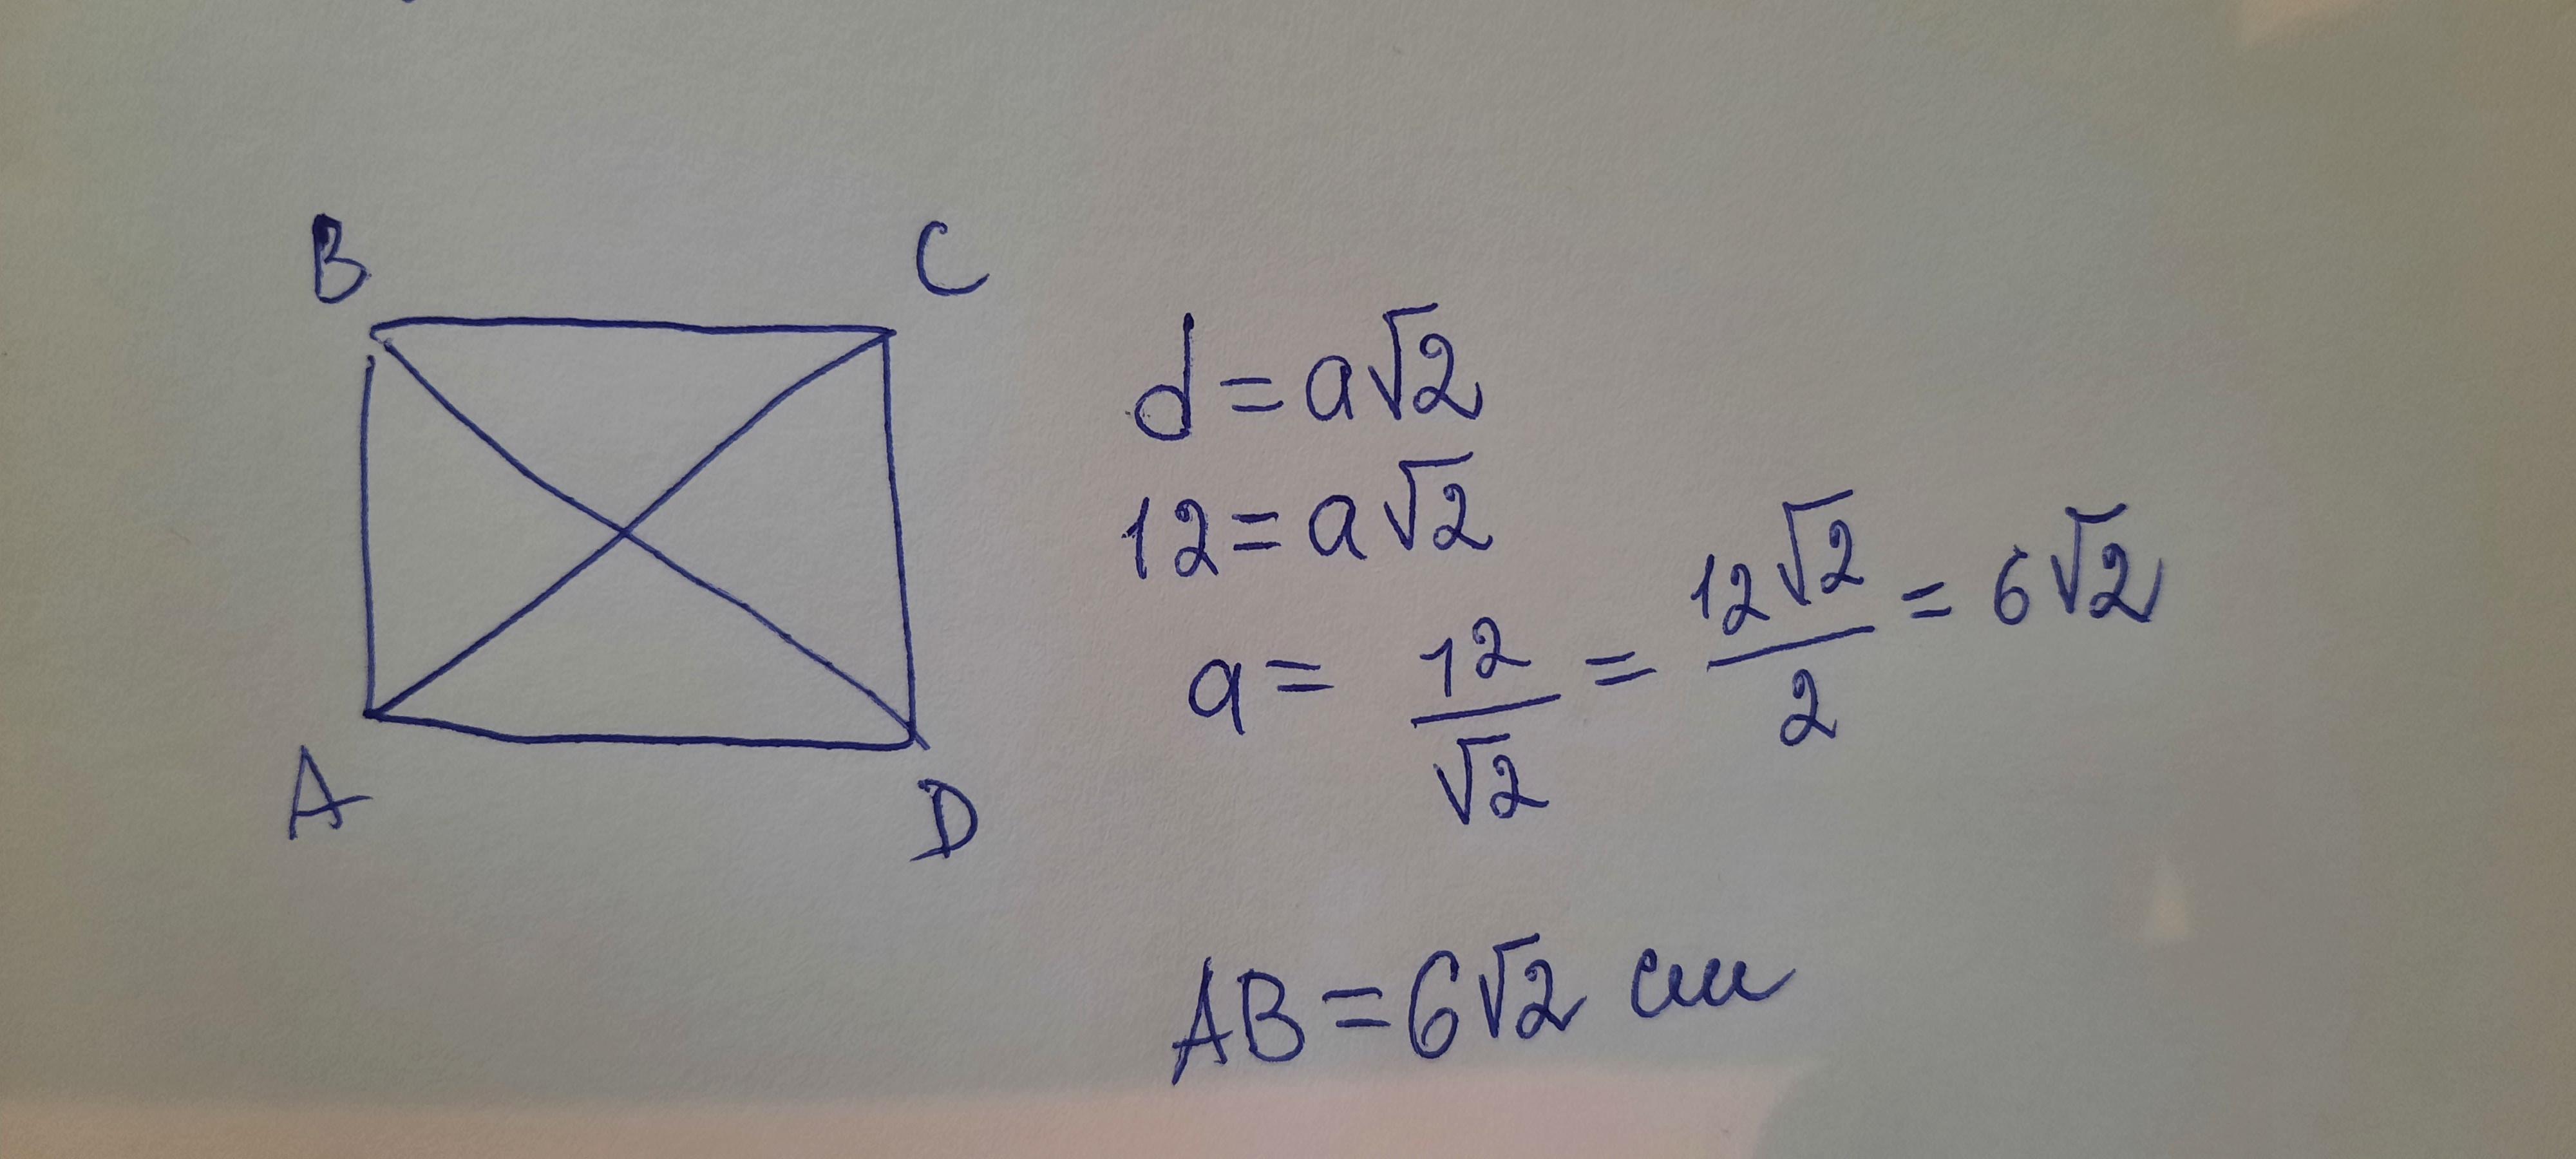 B C
d = a√2
12 = a√2
a = 12/√2 = 12√2/2 = 6√2
A D
AB = 6√2 см